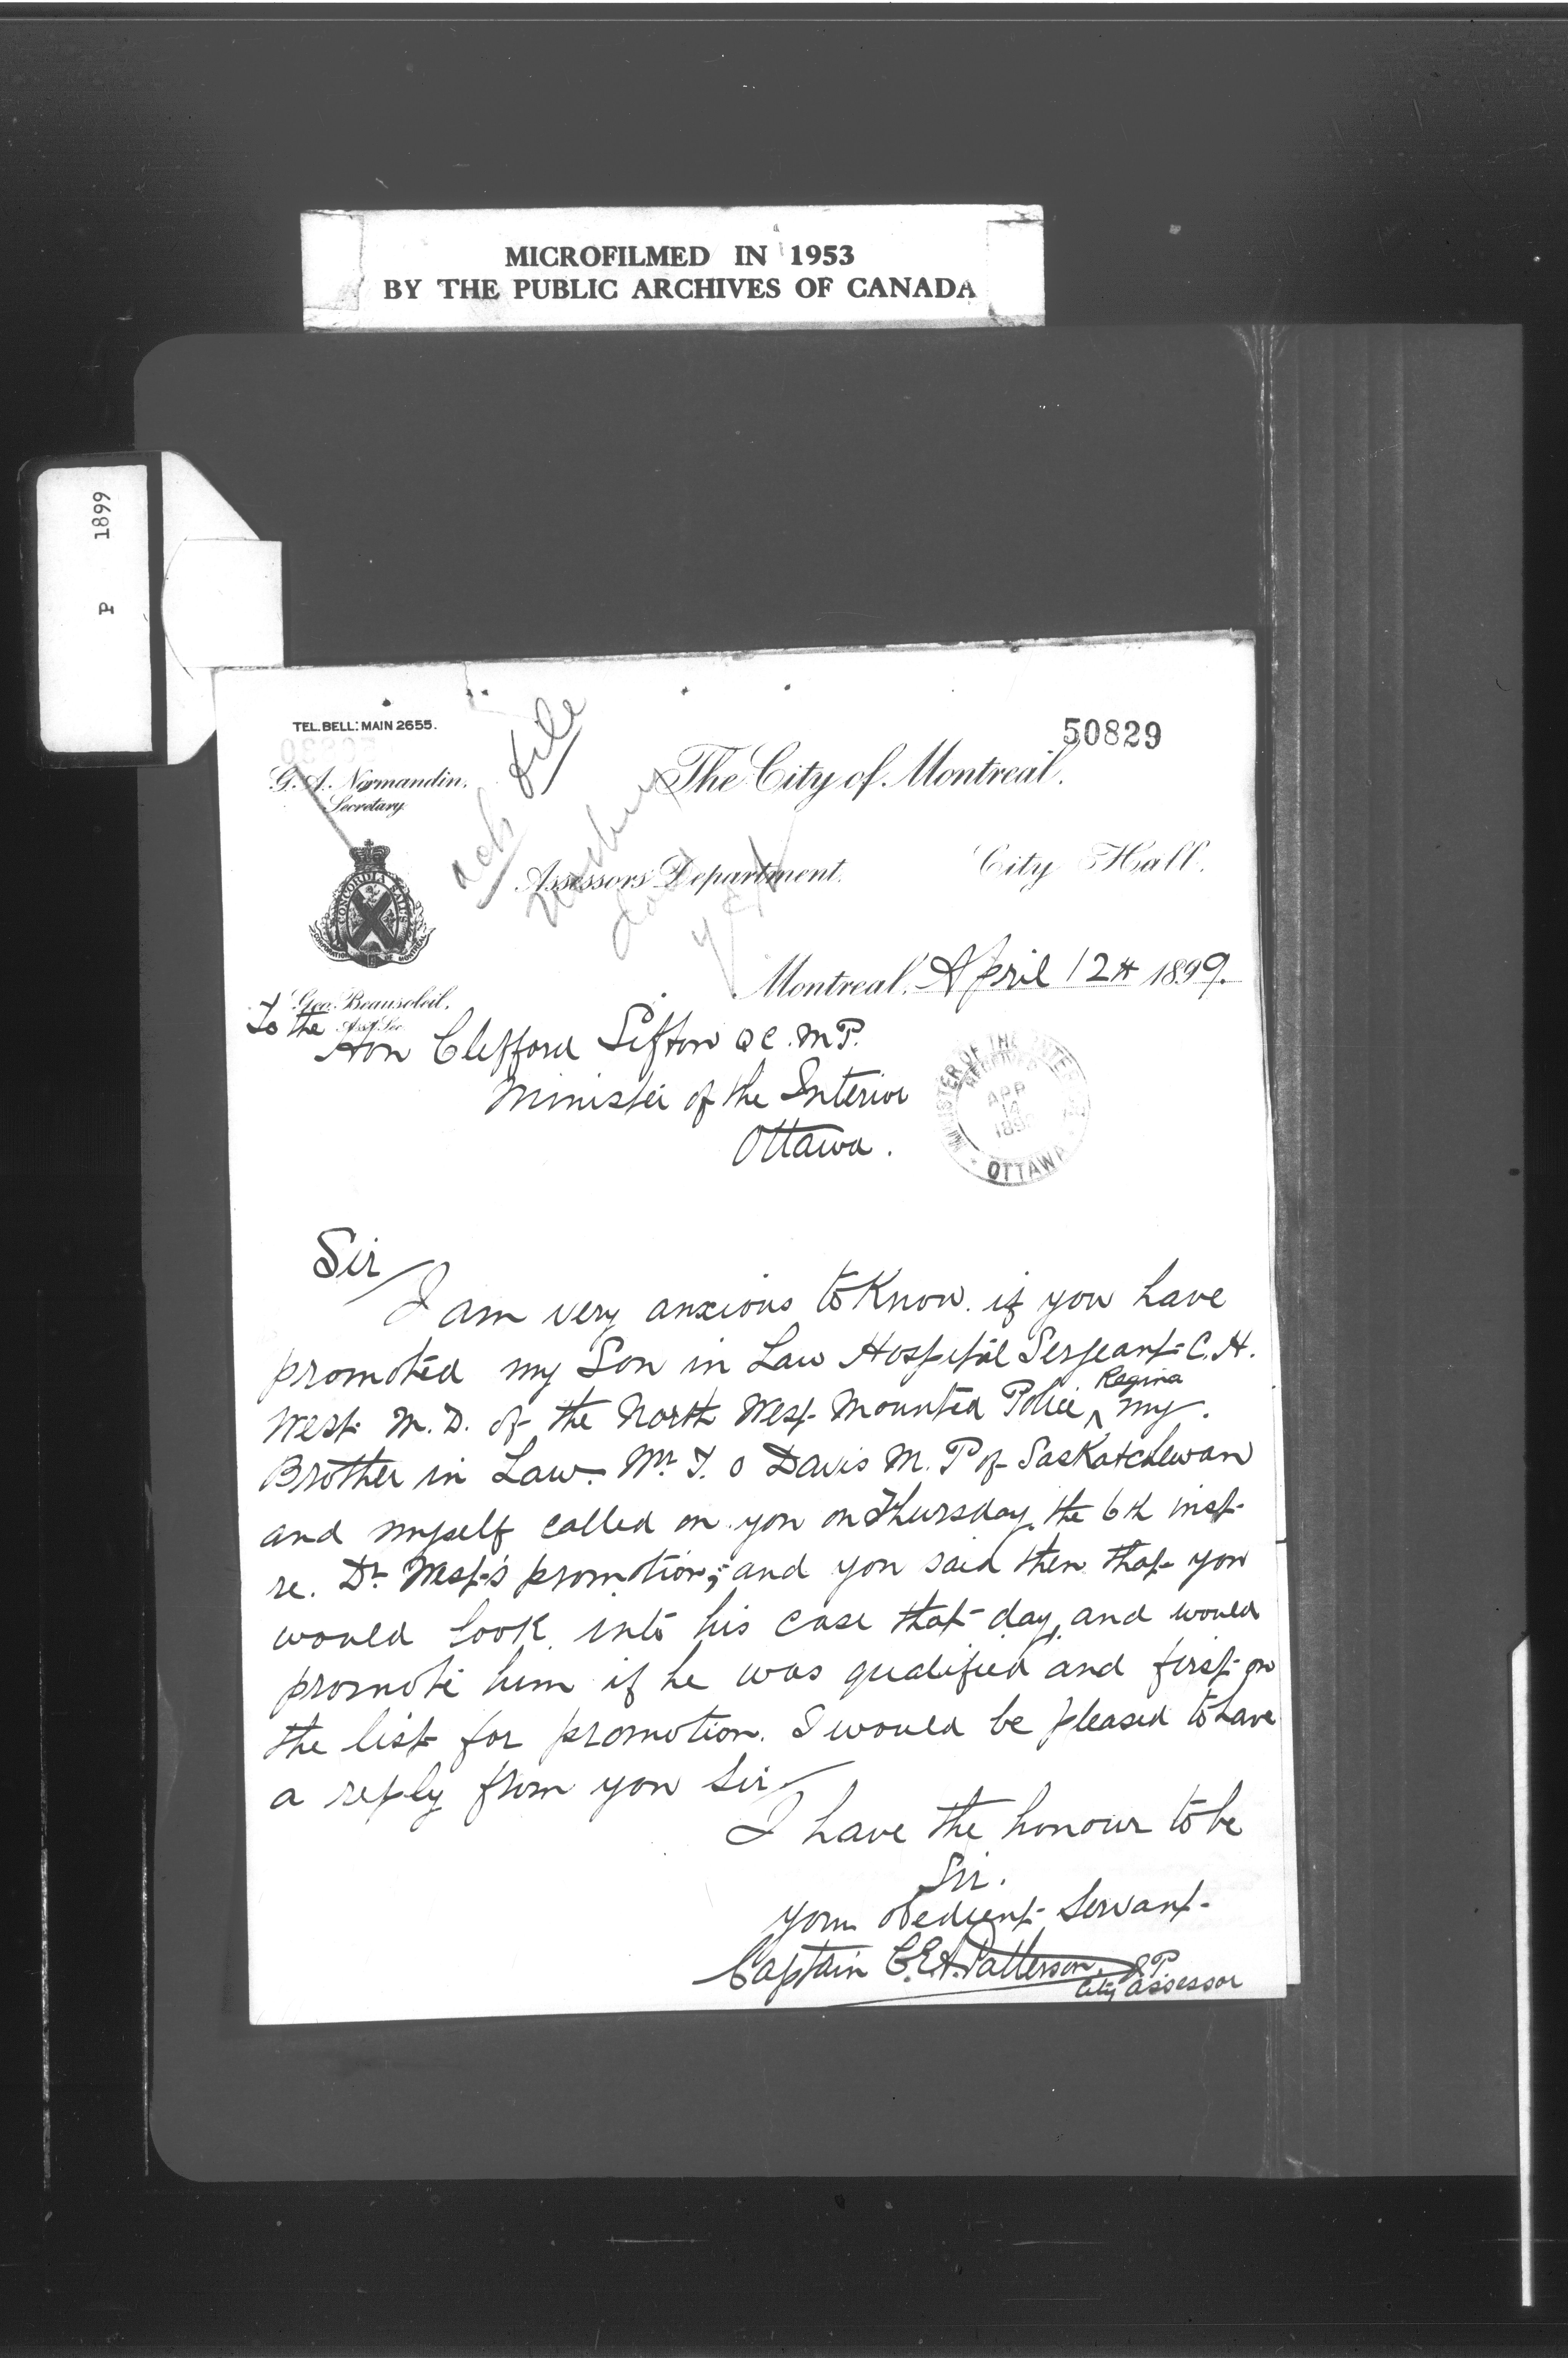 MICROFILMED IN 1953
BY THE PUBLIC ARCHIVES OF CANADA
P 1899
TEL. BELL: MAIN 2655.
50829
G. A. Normandin,
Secretary.
ack file
The City of Montreal.
Assessors' Department.
City Hall.
CONCORDIA SALUS
CORPORATION OF MONTREAL
Montreal, April 12th 1899.
Geo. Beausoleil,
Asst. Sec.
To the
Hon Clifford Sifton QC. M.P.
Minister of the Interior
Ottawa.
MINISTER OF THE INTERIOR
RECEIVED
APR
14
189
OTTAWA
Sir
I am very anxious to Know. if you have
promoted my Son in Law Hospital Sergeant C. H.
West M. D. of the North West Mounted Police, ^ Regina my.
Brother in Law. Mr. T. O Davis M. P of Saskatchewan
and myself called on you on Thursday, the 6th inst
re. Dr West's promotion; and you said then that you
would look into his case that day, and would
promote him if he was qualified and first on
the list for promotion. I would be pleased to have
a reply from you Sir
I have the honour to be
Sir.
your obedient Servant.
Captain C.E.A. Patterson. J.P.
City Assessor